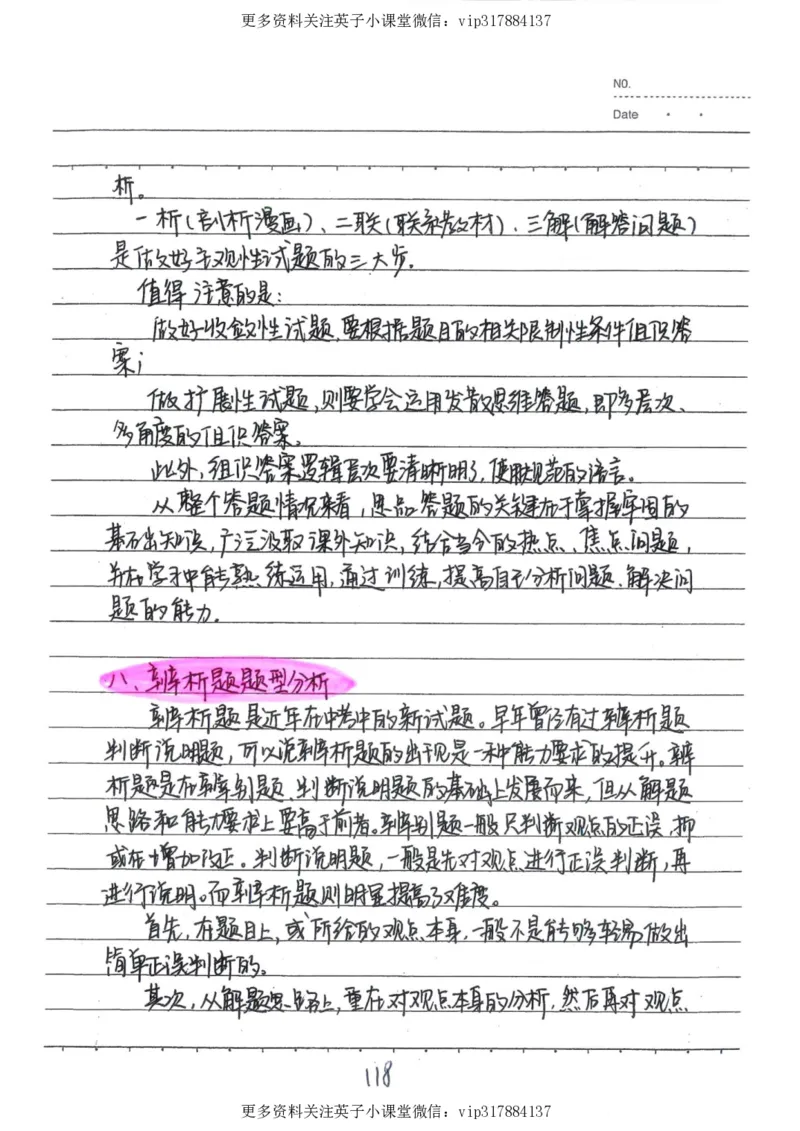 更多资料关注英子小课堂微信：vip317884137
NO.
Date
析。
一析(剖析漫画)、二联(联系教材)、三解(解答问题)
是做好主观性试题的三大步.
值得注意的是:
做好收敛性试题,要根据题目的相关限制性条件组织答
案;
做扩展性试题,则要学会运用发散思维答题,即多层次、
多角度的组织答案。
此外,组织答案逻辑层次要清晰明了,使用规范的语言。
从整个答题情况来看,思品答题的关键在于掌握牢固的
基础知识,广泛汲取课外知识,结合当今的热点、焦点问题,
并在学习中能熟练运用,通过训练,提高自己分析问题、解决问
题的能力.
八、辨析题题型分析
辨析题是近年在中考中的新试题。早年曾经有过辨析题
判断说明题,可以说辨析题的出现是一种能力要求的提升。辨
析题是在辨别题、判断说明题的基础上发展而来,但从解题
思路和能力要求上要高于前者。辨别题一般只判断观点的正误,抑
或在增加改正。判断说明题,一般是先对观点进行正误判断,再
进行说明。而辨析题则明显提高了难度。
首先,在题目上,或所给的观点本身,一般不是能够轻易做出
简单正误判断的。
其次,从解题思路上,重在对观点本身的分析,然后再对观点
118
更多资料关注英子小课堂微信：vip317884137